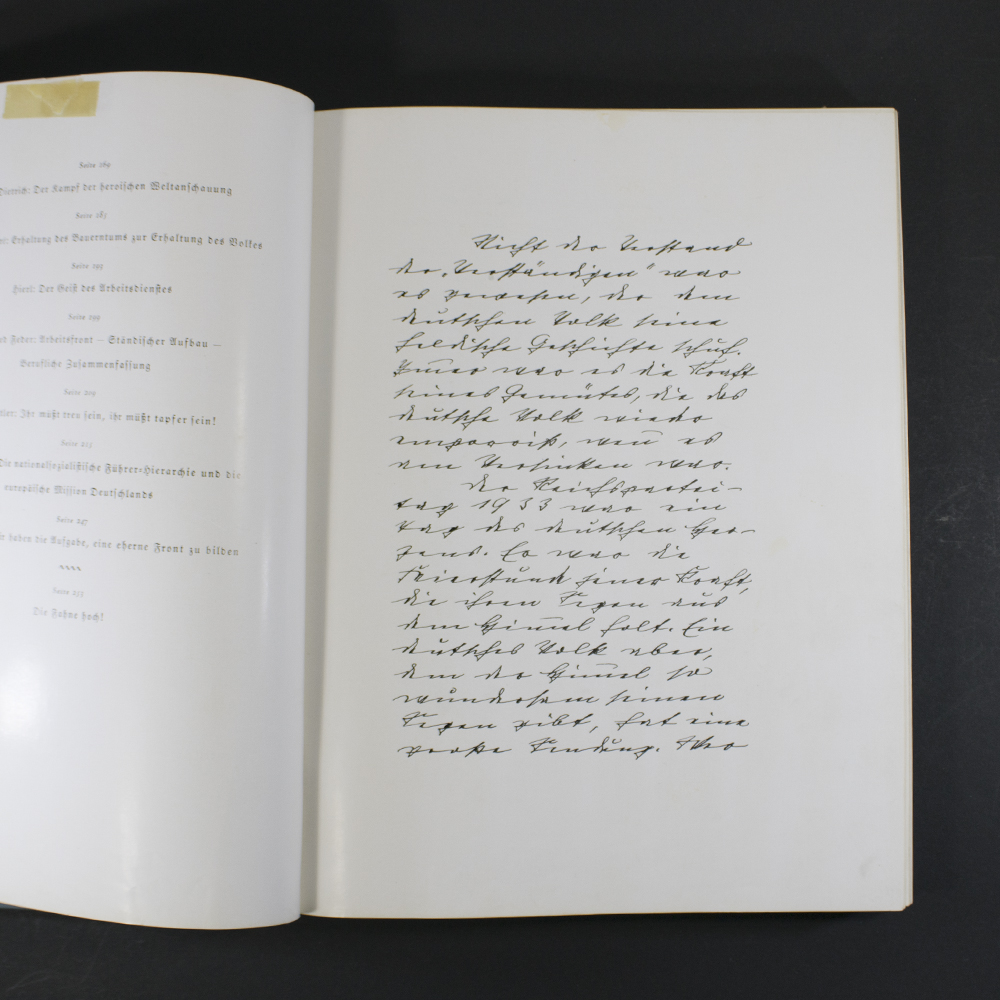 Seite 169
Dietrich: Der Kampf der heroischen Weltanschauung
Seite
Erhaltung des Bauerntums zur Erhaltung des Volkes
Seite 195
Hierl: Der Geist des Arbeitsdienstes
Seite 199
Feder: Arbeitsfront – Ständischer Aufbau –
Berufliche Zusammenfassung
Seite 209
Ihr müßt treu sein, ihr müßt tapfer sein!
Seite
Die nationalsozialistische Führer-Hierarchie und die
europäische Mission Deutschlands
Seite 247
haben die Aufgabe, eine eherne Front zu bilden
Seite
Die Fahne hoch!
Nicht der Verstand
der „Verständigen“ war
es gewesen, der dem
deutschen Volk seine
heldische Geschichte schuf.
Im̅er war es die Kraft
seines Gemütes, die das
deutsche Volk wieder
emporriß, wen̅ es
am Versinken war.
Der Reichspartei-
tag 1933 war ein
Tag des deutschen Her-
zens. Es war die
Feierstunde jener Kraft,
die ihren Segen aus
dem Him̅el holt. Ein
deutsches Volk aber,
dem der Him̅el so
wundersam seinen
Segen gibt, hat eine
große Sendung. Wer